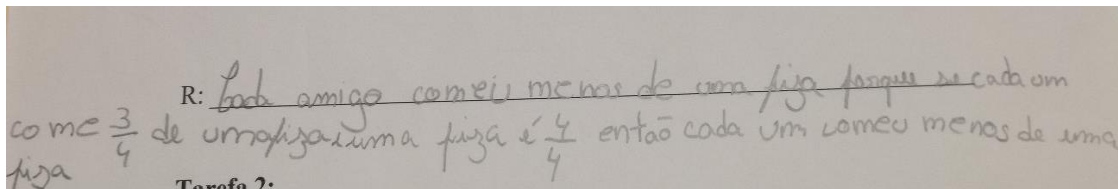 R: Cada amigo comeu menos de uma piza porque se cada um
come 3/4 de uma piza e uma piza é 4/4 então cada um comeu menos de uma
piza
Tarefa 2: